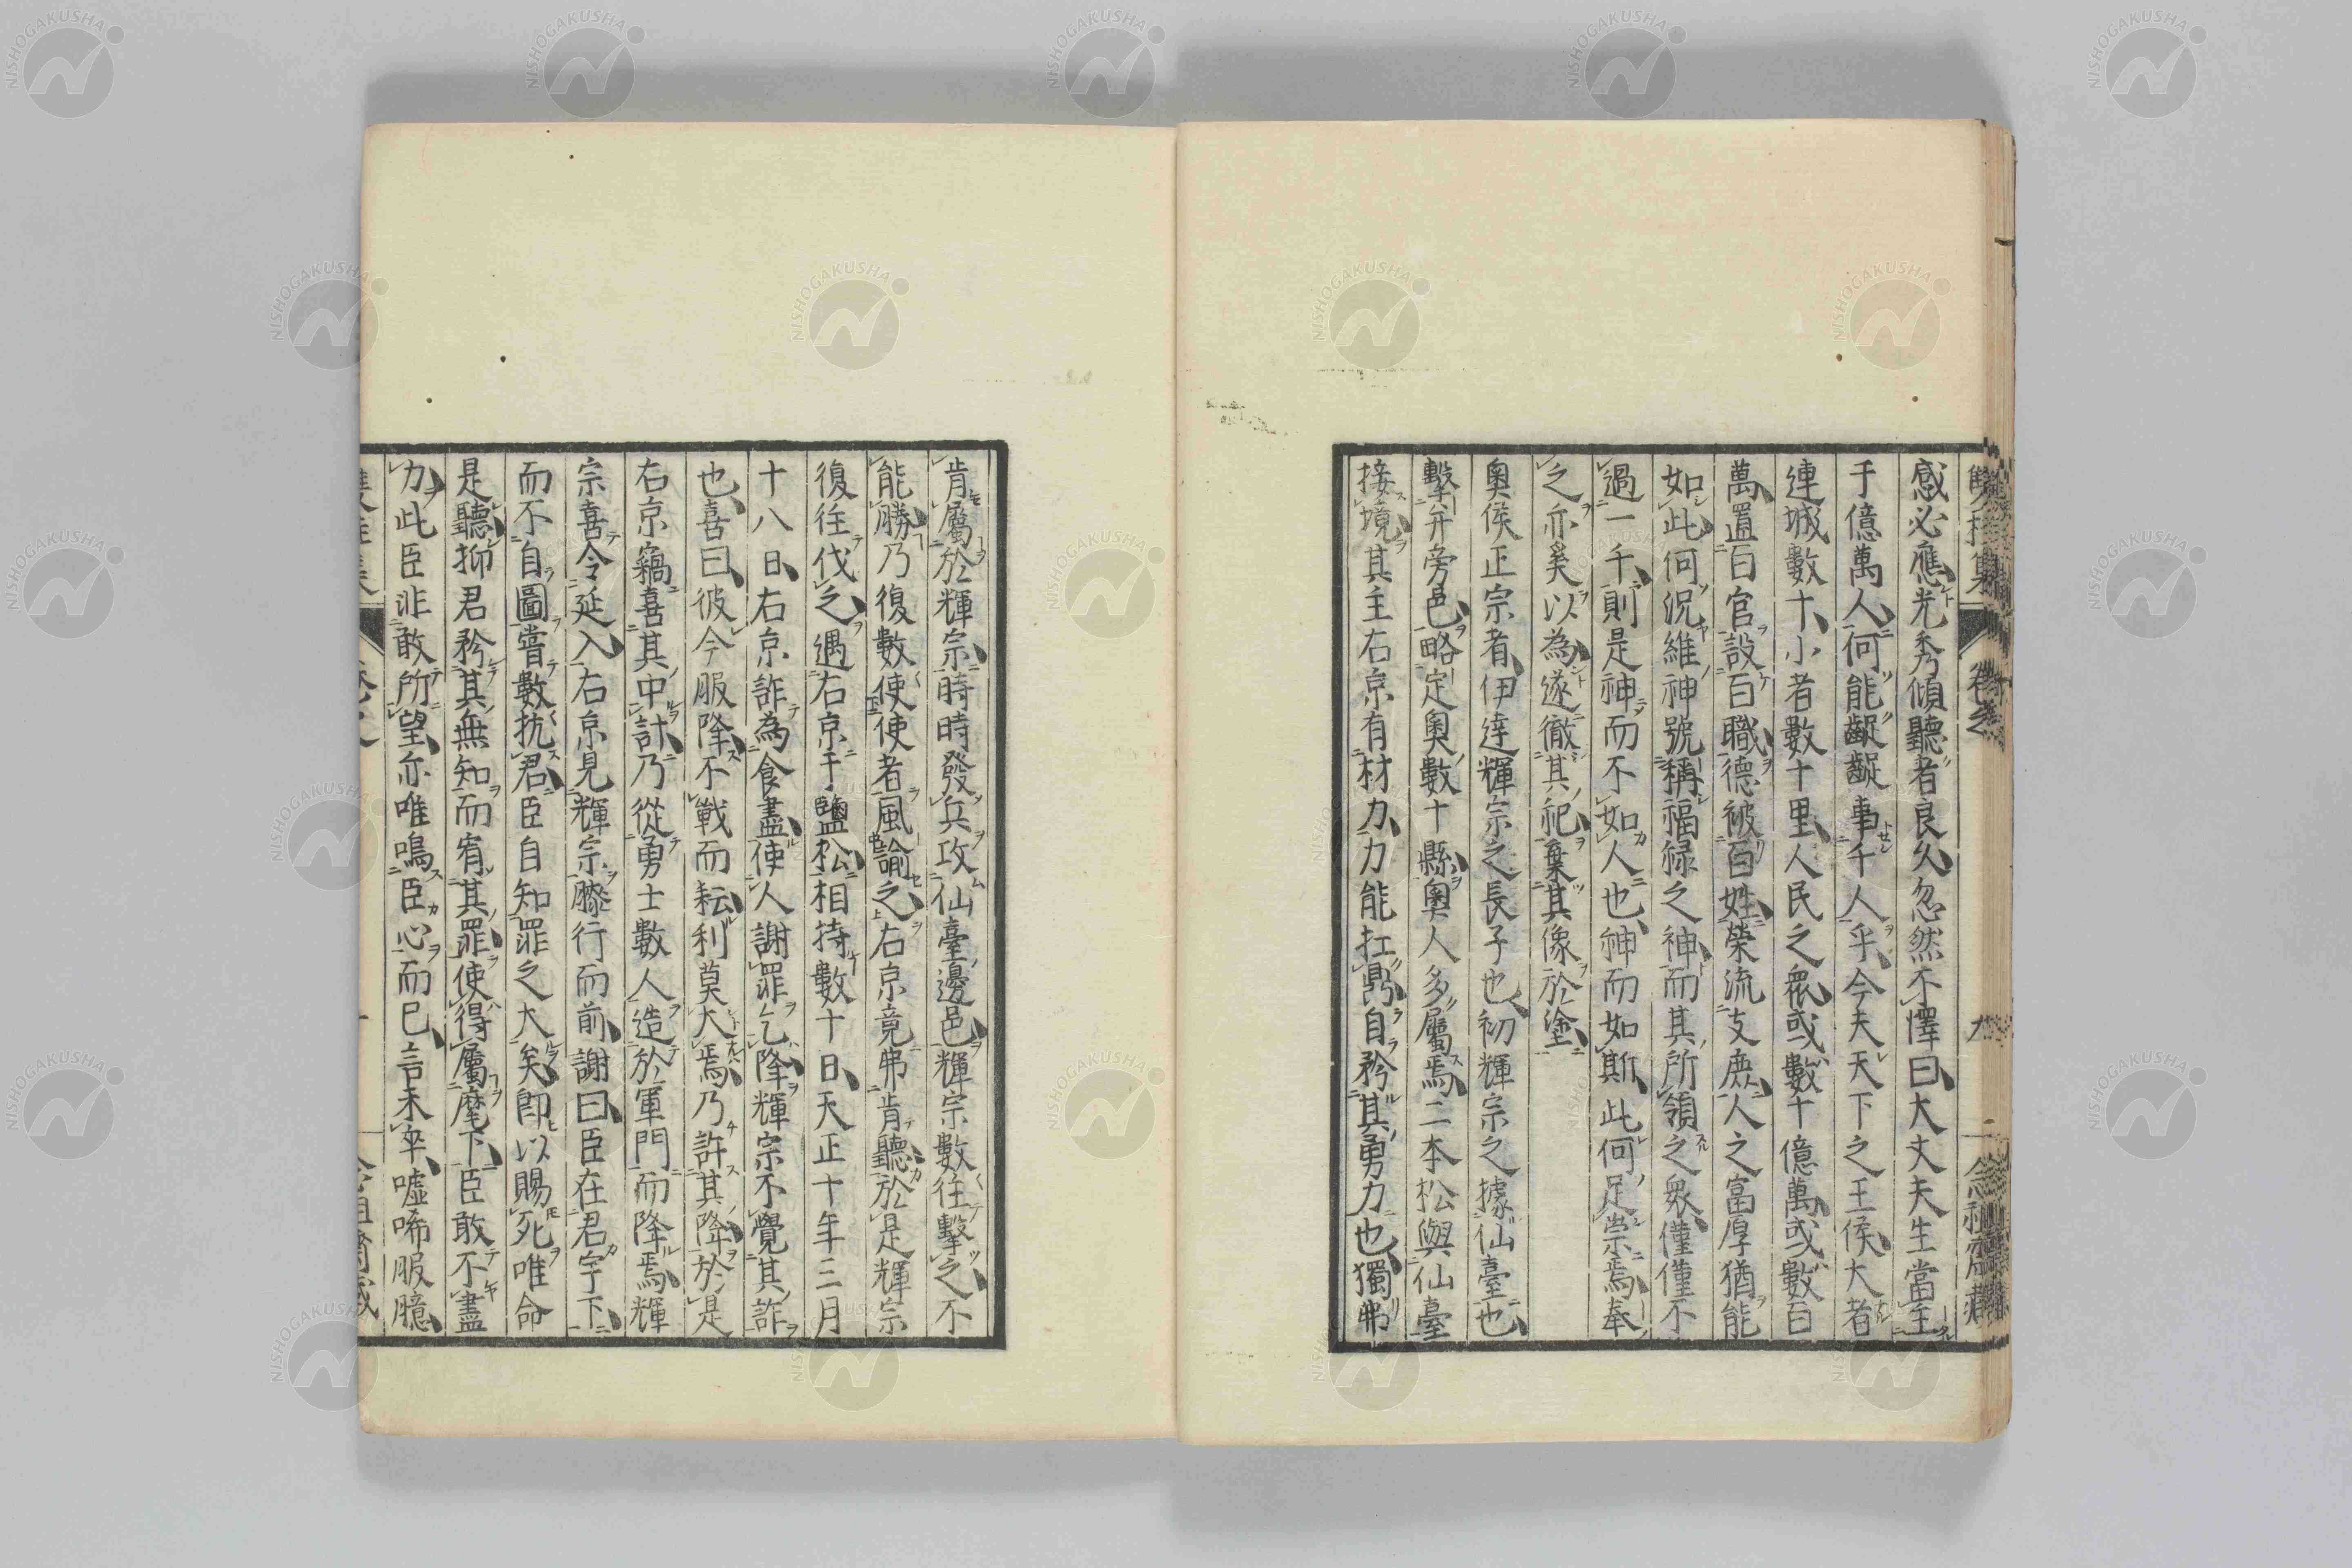 感必應光秀傾聽者良久忽然不懌曰大丈夫生當至
于億萬人何能齪齪事千人乎今夫天下之王侯大者
連城數十小者數十里人民之衆或數千億萬或數百
萬置百官設百職德被百姓榮流支庶人之富厚猶能
如此何況維神號稱福祿之神而其所領之衆僅僅不
過一千則是神而不如人也神而如斯此何足崇焉奉
之亦奚以為遂徹其祀棄其像於塗
奧侯正宗者伊達輝宗之長子也初輝宗之據仙臺也
擊并旁邑略定奧數十縣奧人多屬焉二本松與仙臺
接境其主右京有材力力能扛鼎自矜其勇力也獨弗
肯屬於輝宗時時發兵攻仙臺邊邑輝宗數往擊之不
能勝乃復數使使者風諭之右京竟弗肯聽於是輝宗
復往伐之遇右京于鹽松相持數十日天正十年三月
十八日右京詐為食盡使人謝罪乞降輝宗不覺其詐
也喜曰彼今服降不戰而耘利莫大焉乃許其降於是
右京竊喜其中計乃從勇士數人造於軍門而降焉輝
宗喜令延入右京見輝宗膝行而前謝曰臣在君宇下
而不自圖嘗數抗君臣自知罪之大矣卽以賜死唯命
是聽抑君矜其無知而宥其罪使得屬麾下臣敢不盡
力此臣非敢所望亦唯鳴臣心而已言未卒噓唏服臆
NISHOGAKUSHA